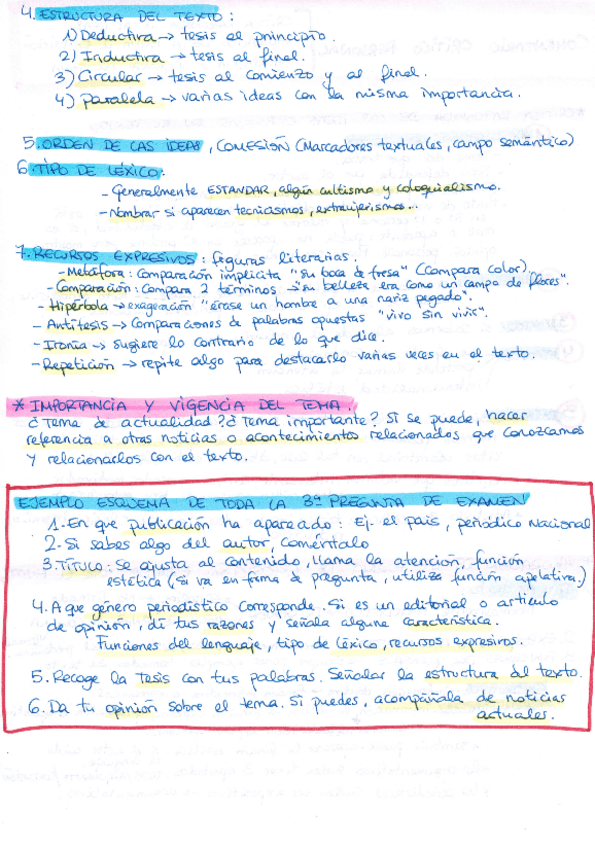 4. ESTRUCTURA DEL TEXTO:
1) Deductiva → tesis al principio.
2) Inductiva → tesis al final.
3) Circular → tesis al comienzo y al final.
4) Paralela → varias ideas con la misma importancia.
5. ORDEN DE LAS IDEAS, COHESIÓN (Marcadores textuales, campo semántico)
6. TIPO DE LÉXICO:
- Generalmente ESTANDAR, algún cultismo y coloquialismo.
- Nombrar si aparecen tecnicismos, extranjerismos...
7. RECURSOS EXPRESIVOS: figuras literarias.
- Metáfora: Comparación implícita "su boca de fresa" (Compara color).
- Comparación: Compara 2 términos → su belleza era como un campo de flores".
- Hipérbola → exageración "érase un hombre a una nariz pegado".
- Antítesis → Comparaciones de palabras opuestas "vivo sin vivir".
- Ironía → sugiere lo contrario de lo que dice.
- Repetición → repite algo para destacarlo varias veces en el texto.
* IMPORTANCIA Y VIGENCIA DEL TEMA.
¿Tema de actualidad? ¿Tema importante? Si se puede, hacer
referencia a otras noticias o acontecimientos relacionados que conozcamos
y relacionarlos con el texto.
EJEMPLO ESQUEMA DE TODA LA 3ª PREGUNTA DE EXAMEN
1.- En que publicación ha aparecido: Ej.- el país, periódico Nacional
2- Si sabes algo del autor, coméntalo
3. TÍTULO: Se ajusta al contenido, llama la atención, función
estética (si va en forma de pregunta, utiliza función apelativa.)
4. A que género periodístico corresponde. Si es un editorial o artículo
de opinión, di tus razones y señala alguna característica.
Funciones del lenguaje, tipo de léxico, recursos expresivos.
5. Recoge la Tesis con tus palabras. Señalar la estructura del texto.
6. Da tu opinión sobre el tema. Si puedes, acompáñala de noticias
actuales.